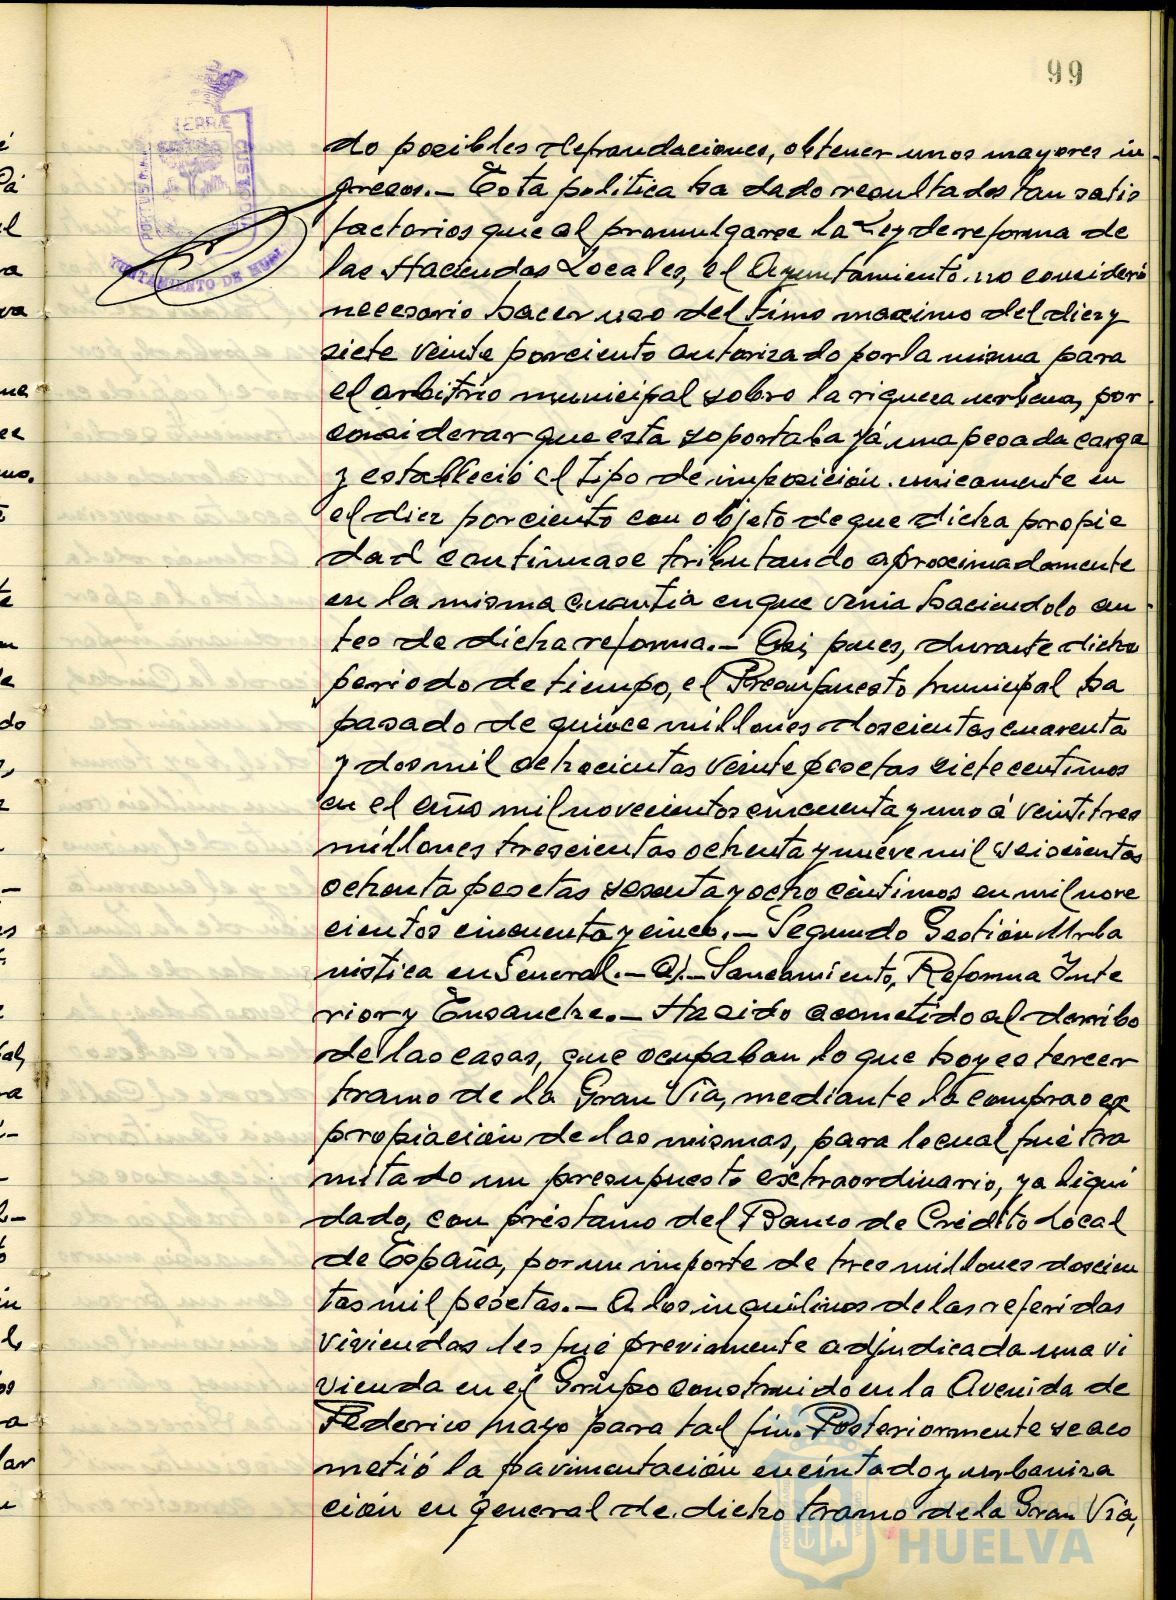 99
TERRÆ
PORTUS MARIS
CUSTODIA
AYUNTAMIENTO DE HUELVA
do posibles defraudaciones, obtener unos mayores in-
gresos.— Esta politica ha dado resultados tan satis
factorios que al promulgarse la Ley de reforma de
las Haciendas Locales, el Ayuntamiento no consideró
necesario hacer uso del timo maximo del diez y
siete veinte porciento autorizado por la misma para
el arbitrio municipal sobre la riqueza urbana, por
considerar que esta soportaba yá una pesada carga
y estableció el tipo de imposición unicamente en
el diez porciento con objeto de que dicha propie
dad continuase tributando aproximadamente
en la misma cuantia en que venia haciendolo an-
tes de dicha reforma.— Asi pues, durante dicho
periodo de tiempo, el Presupuesto municipal ha
pasado de quince millones doscientas cuarenta
y dos mil ochocientas veinte pesetas siete centimos
en el año mil novecientos cincuenta y uno á veintitres
millones trescientas ochenta y nueve mil seiscientas
ochenta pesetas sesenta y ocho céntimos en mil nove
cientos cincuenta y cinco.— Segundo Gestión Urba
nistica en General.— A).— Saneamiento, Reforma Inte
rior y Ensanche.— Ha sido acometido al derribo
de las casas, que ocupaban lo que hoy es tercer
tramo de la Gran Vía, mediante la compra o ex
propiación de las mismas, para lo cual fué tra
mitado un presupuesto extraordinario, ya liqui
dado, con préstamo del Banco de Crédito Local
de España, por un importe de tres millones doscien
tas mil pesetas.— A los inquilinos de las referidas
viviendas les fué previamente adjudicada una vi
vienda en el Grupo construido en la Avenida de
Federico Mayo para tal fin. Posteriormente se aco
metió la pavimentación encintado y urbaniza
ción en general de dicho tramo de la Gran Vía,
HUELVA